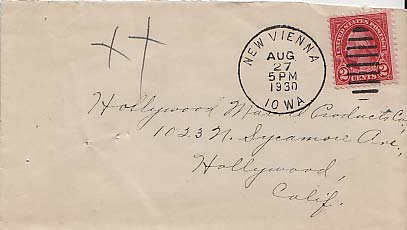 NEW VIENNA
AUG
27
5 PM
1930
IOWA
UNITED STATES POSTAGE
2 CENTS 2
Hollywood Marvel Products Co.,
1023 N. Sycamore Ave.,
Hollywood,
Calif.